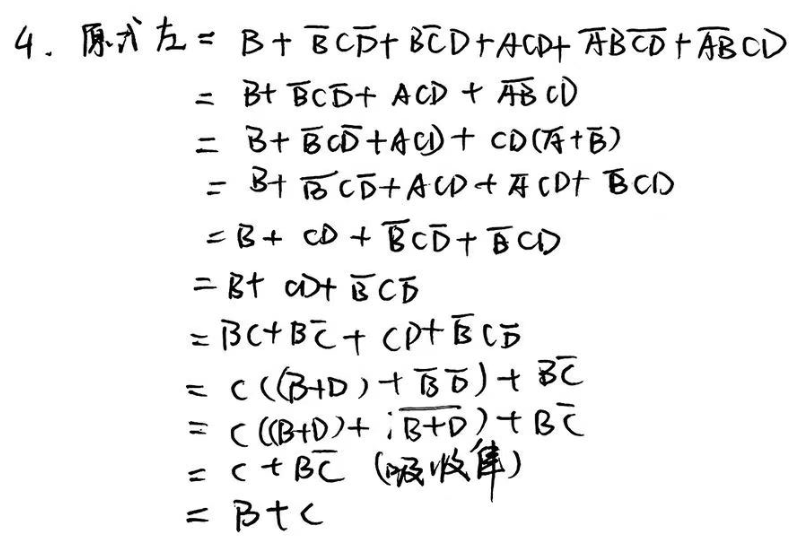 4. 原式左 = B + B̅CD̅ + BC̅D + ACD + A̅BC̅D̅ + A̅B̅CD
= B + B̅CD̅ + ACD + A̅B̅CD
= B + B̅CD̅ + ACD + CD(A̅+B̅)
= B + B̅CD̅ + ACD + A̅CD + B̅CD
= B + CD + B̅CD̅ + B̅CD
= B + CD + B̅CD̅
= BC + BC̅ + CD + B̅CD̅
= C((B+D) + B̅D̅) + BC̅
= C((B+D) + B̅+̅D̅) + BC̅
= C + BC̅ (吸收律)
= B + C